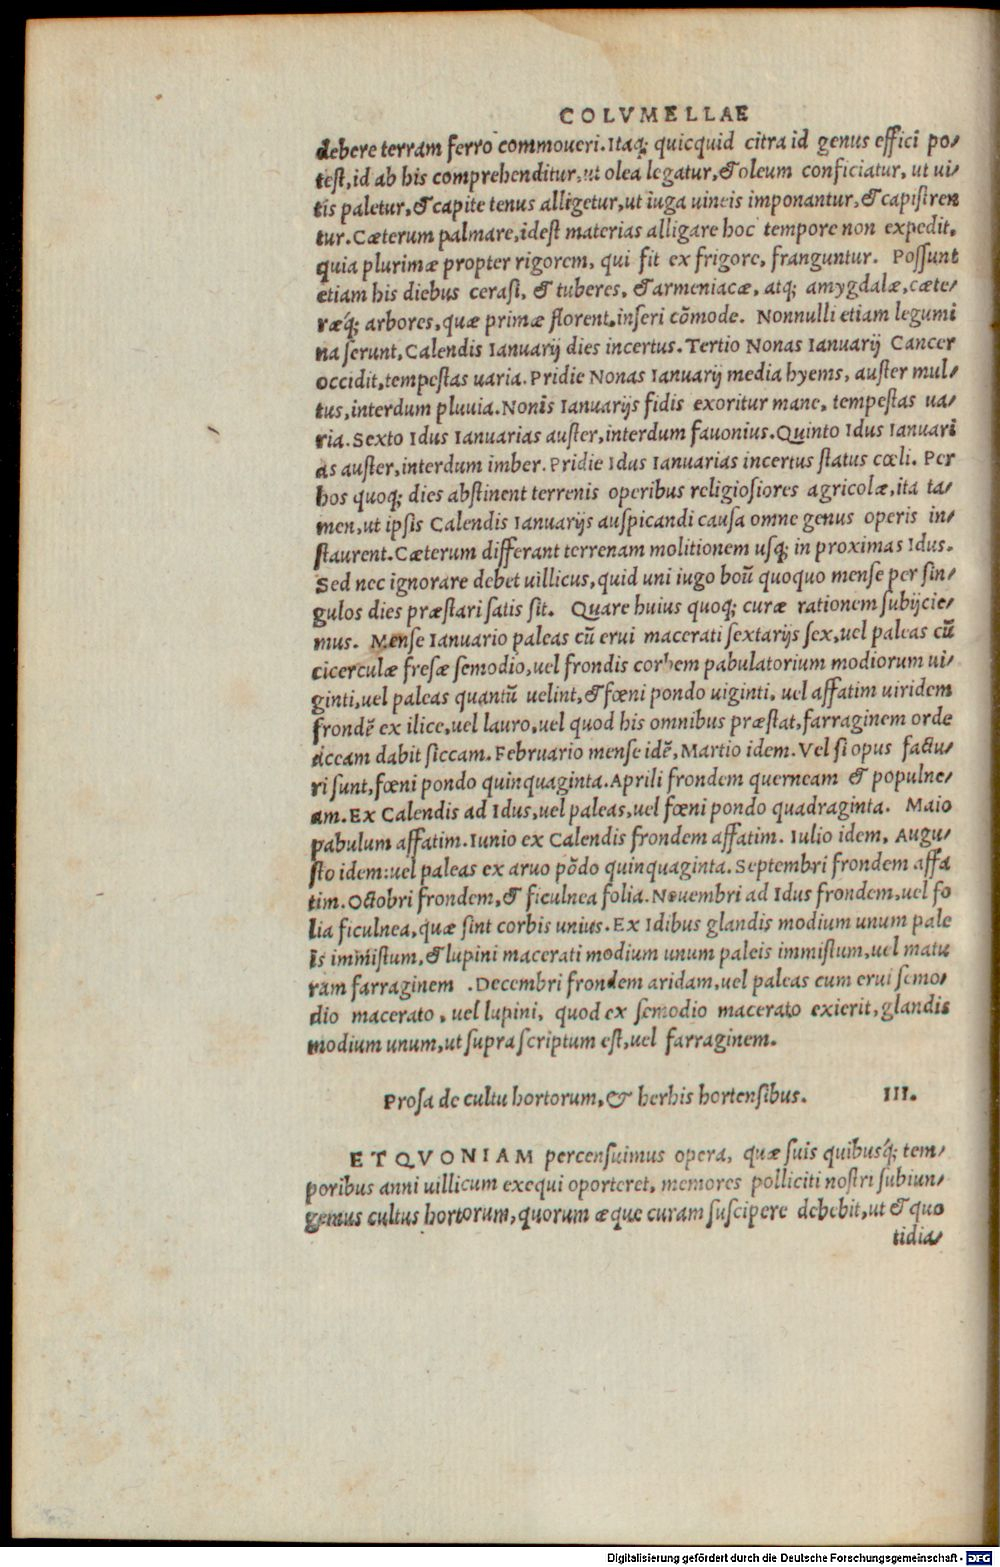 COLVMELLAE
debere terram ferro commoueri. Itaq; quicquid citra id genus effici po/
test, id ab his comprehenditur, ut olea legatur, & oleum conficiatur, ut ui/
tis paletur, & capite tenus alligetur, ut iuga uineis imponantur, & capistren
tur. Cæterum palmare, idest materias alligare hoc tempore non expedit,
quia plurimæ propter rigorem, qui fit ex frigore, franguntur. Possunt
etiam his diebus cerasi, & tuberes, & armeniacæ, atq; amygdalæ, cæte/
ræq́; arbores, quæ primæ florent, inseri cõmode. Nonnulli etiam legumi
na serunt, Calendis Ianuarij dies incertus. Tertio Nonas Ianuarij Cancer
occidit, tempestas uaria. Pridie Nonas Ianuarij media hyems, auster mul/
tus, interdum pluuia. Nonis Ianuarijs fidis exoritur mane, tempestas ua/
ria. Sexto Idus Ianuarias auster, interdum fauonius. Quinto Idus Ianuari
as auster, interdum imber. Pridie Idus Ianuarias incertus status cœli. Per
hos quoq; dies abstinent terrenis operibus religiosiores agricolæ, ita ta/
men, ut ipsis Calendis Ianuarijs auspicandi causa omne genus operis in/
staurent. Cæterum differant terrenam molitionem usq; in proximas Idus.
Sed nec ignorare debet uillicus, quid uni iugo boũ quoquo mense per sin/
gulos dies præstari satis sit. Quare huius quoq; curæ rationem subijcie/
mus. Mense Ianuario paleas cũ erui macerati sextarijs sex, uel paleas cũ
cicerculæ fresæ semodio, uel frondis corbem pabulatorium modiorum ui/
ginti, uel paleas quantũ uelint, & fœni pondo uiginti, uel affatim uiridem
frondẽ ex ilice, uel lauro, uel quod his omnibus præstat, farraginem orde
aceam dabit siccam. Februario mense idẽ, Martio idem. Vel si opus factu/
ri sunt, fœni pondo quinquaginta. Aprili frondem querneam & populne/
am. Ex Calendis ad Idus, uel paleas, uel fœni pondo quadraginta. Maio
pabulum affatim. Iunio ex Calendis frondem affatim. Iulio idem, Augu/
sto idem: uel paleas ex aruo põdo quinquaginta. Septembri frondem affa
tim. Octobri frondem, & ficulnea folia. Nouembri ad Idus frondem, uel fo
lia ficulnea, quæ sint corbis unius. Ex Idibus glandis modium unum pale
is immistum, & lupini macerati modium unum paleis immistum, uel matu
ram farraginem . Decembri frondem aridam, uel paleas cum erui semo/
dio macerato, uel lupini, quod ex semodio macerato exierit, glandis
modium unum, ut supra scriptum est, uel farraginem.
Prosa de cultu hortorum, & herbis hortensibus. III.
ET QVONIAM percensuimus opera, quæ suis quibusq́; tem/
poribus anni uillicum exequi oporteret, memores polliciti nostri subiun/
gemus cultus hortorum, quorum æque curam suscipere debebit, ut & quo
tidia/
Digitalisierung gefördert durch die Deutsche Forschungsgemeinschaft - DFG